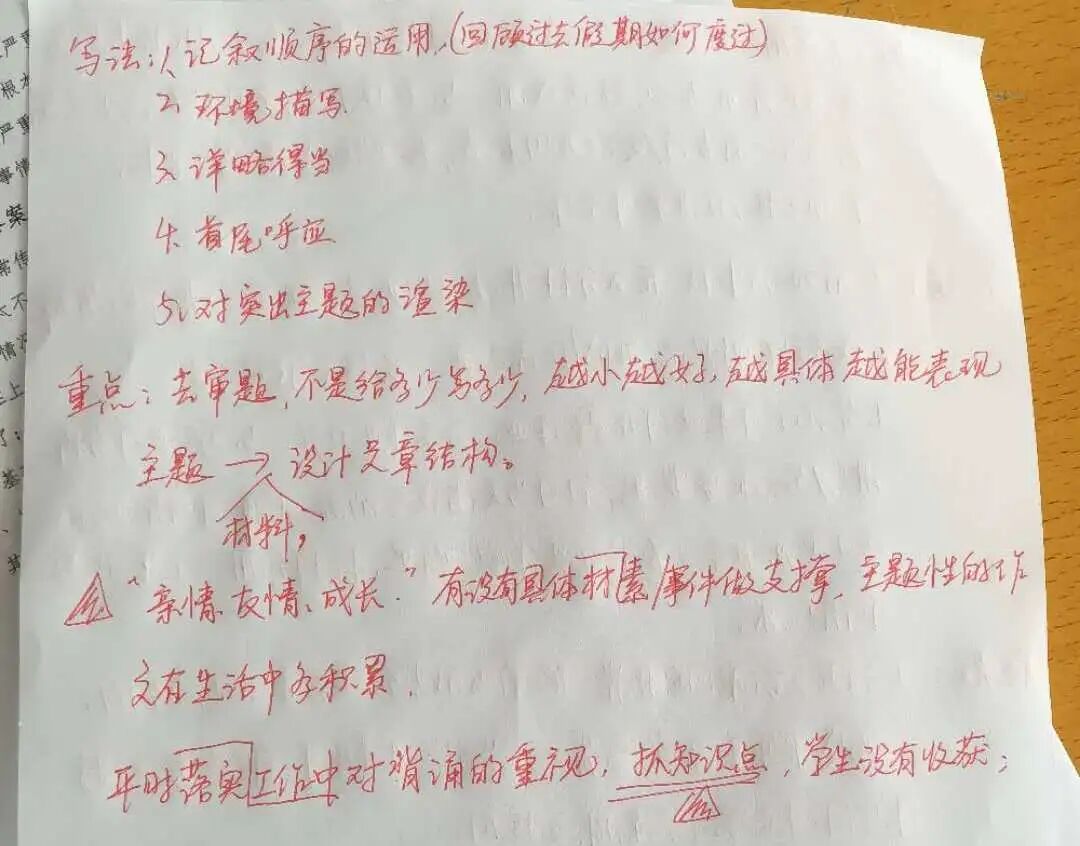 写法:1、记叙顺序的运用,(回顾过去假期如何度过)
2、环境描写
3、详略得当
4、首尾呼应
5、对突出主题的渲染
重点:去审题,不是给多少写多少,越小越好,越具体越能表现
主题→设计文章结构。
材料,
"亲情、友情、成长"有没有具体材素/事件做支撑,主题性的作
文在生活中多积累.
平时落实工作中对背诵的重视,抓知识点,学生没有收获;